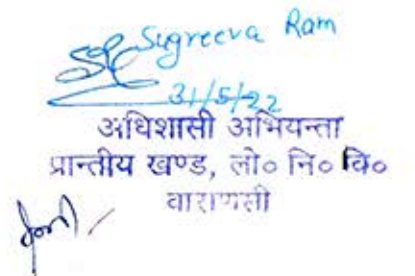 Sugreeva Ram
31/5/22
अधिशासी अभियन्ता
प्रान्तीय खण्ड, लो० नि० वि०
वाराणसी